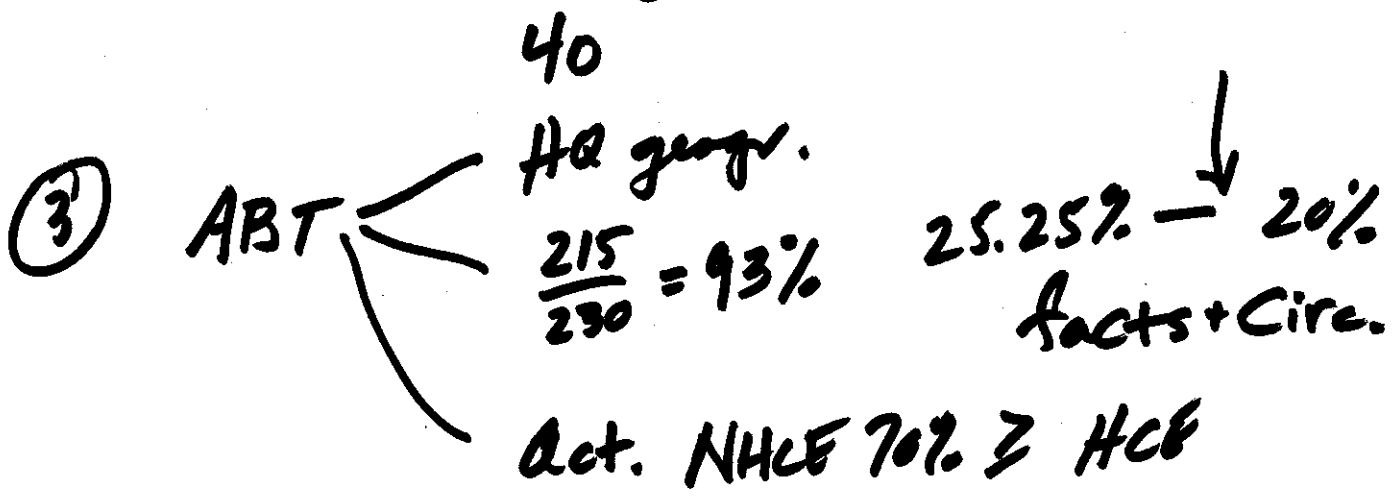 40
③ ABT HQ geogr.
215/230 = 93% 25.25% – 20%
facts + Circ.
Act. NHCE 70% ≥ HCE